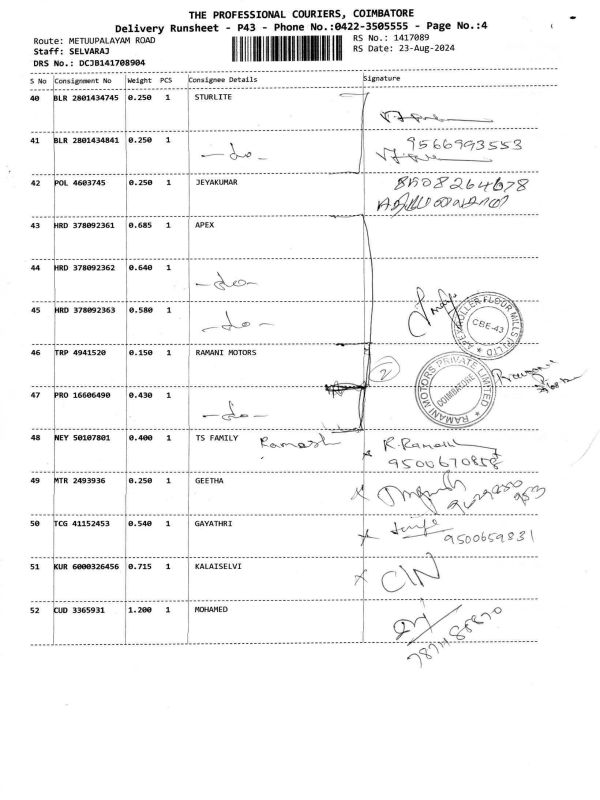 THE PROFESSIONAL COURIERS, COIMBATORE
Delivery Runsheet - P43 - Phone No.:0422-3505555 - Page No.:4
Route: METUUPALAYAM ROAD
RS No.: 1417089
Staff: SELVARAJ
RS Date: 23-Aug-2024
DRS No.: DCJB141708904
S No Consignment No Weight PCS Consignee Details Signature
40 BLR 2801434745 0.250 1 STURLITE
41 BLR 2801434841 0.250 1 -do- 9566993553
42 POL 4603745 0.250 1 JEYAKUMAR 8508264678
43 HRD 378092361 0.685 1 APEX
44 HRD 378092362 0.640 1 -do-
45 HRD 378092363 0.580 1 -do-
APEX ROLLER FLOUR MILLS (P) LTD
CBE-43
46 TRP 4941520 0.150 1 RAMANI MOTORS 2
RAMANI MOTORS PRIVATE LIMITED
COIMBATORE
47 PRO 16606490 0.430 1 -do-
48 NEY 50107801 0.400 1 TS FAMILY Ramesh R.Ramesh
9500670858
49 MTR 2493936 0.250 1 GEETHA
50 TCG 41152453 0.540 1 GAYATHRI 9500659831
51 KUR 6000326456 0.715 1 KALAISELVI
52 CUD 3365931 1.200 1 MOHAMED